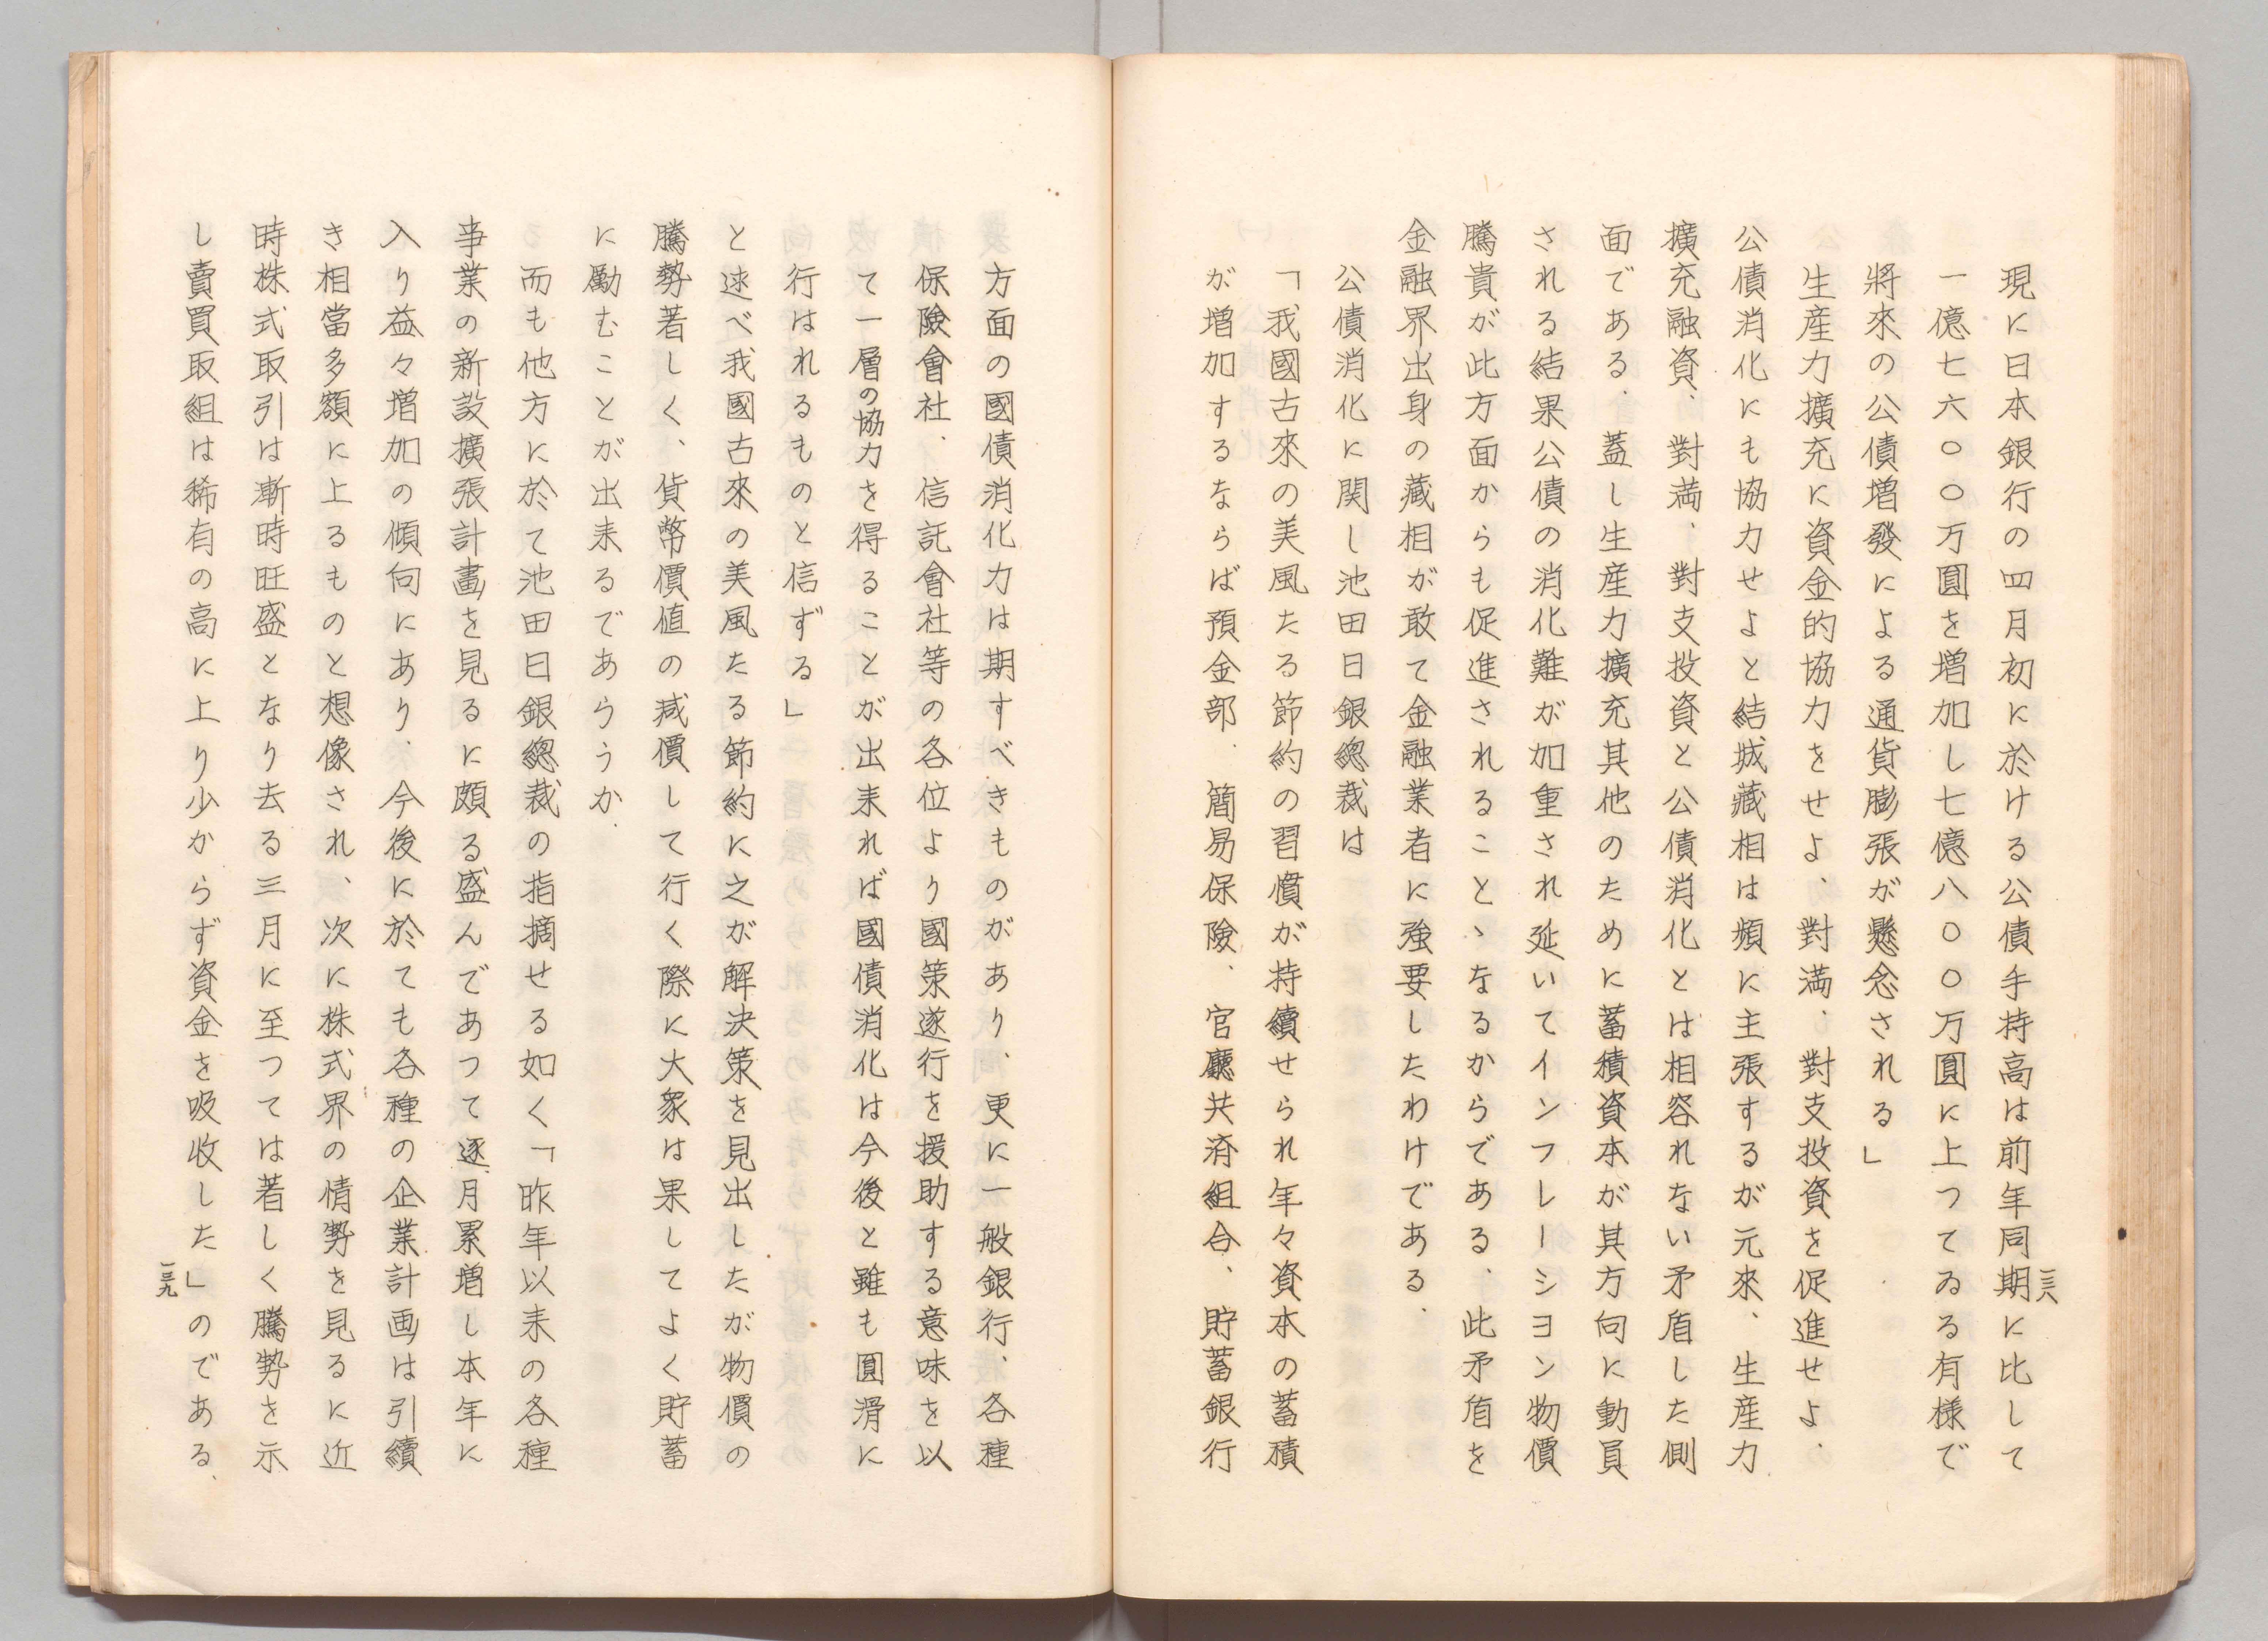 現に日本銀行の四月初に於ける公債手持高は前年同期に比して
一億七六〇〇万圓を増加し七億八〇〇万圓に上つてゐる有様で
將來の公債増發による通貨膨張が懸念される」
生産力擴充に資金的協力をせよ、對満、對支投資を促進せよ、
公債消化にも協力せよと結城藏相は頻に主張するが元來、生産力
擴充融資、對満、對支投資と公債消化とは相容れない矛盾した側
面である、蓋し生産力擴充其他のために蓄積資本が其方向に動員
される結果公債の消化難が加重され延いてインフレーシヨン物價
騰貴が此方面からも促進されることゝなるからである、此矛盾を
金融界出身の藏相が敢て金融業者に強要したわけである、
公債消化に関し池田日銀總裁は
「我國古來の美風たる節約の習慣が持續せられ年々資本の蓄積
が増加するならば預金部、簡易保險、官廳共済組合、貯蓄銀行
一三八
方面の國債消化力は期すべきものがあり、更に一般銀行、各種
保險會社、信託會社等の各位より國策遂行を援助する意味を以
て一層の協力を得ることが出来れば國債消化は今後と雖も圓滑に
行はれるものと信ずる」
と述べ我國古來の美風たる節約に之が解決策を見出したが物價の
騰勢著しく、貨幣價値の減價して行く際に大衆は果してよく貯蓄
に勵むことが出来るであらうか、
而も他方に於て池田日銀總裁の指摘せる如く「昨年以来の各種
事業の新設擴張計畫を見るに頗る盛んであつて逐月累増し本年に
入り益々増加の傾向にあり、今後に於ても各種の企業計画は引續
き相當多額に上るものと想像され、次に株式界の情勢を見るに近
時株式取引は漸時旺盛となり去る三月に至つては著しく騰勢を示
し賣買取組は稀有の高に上り少からず資金を吸收した」のである、
一三九